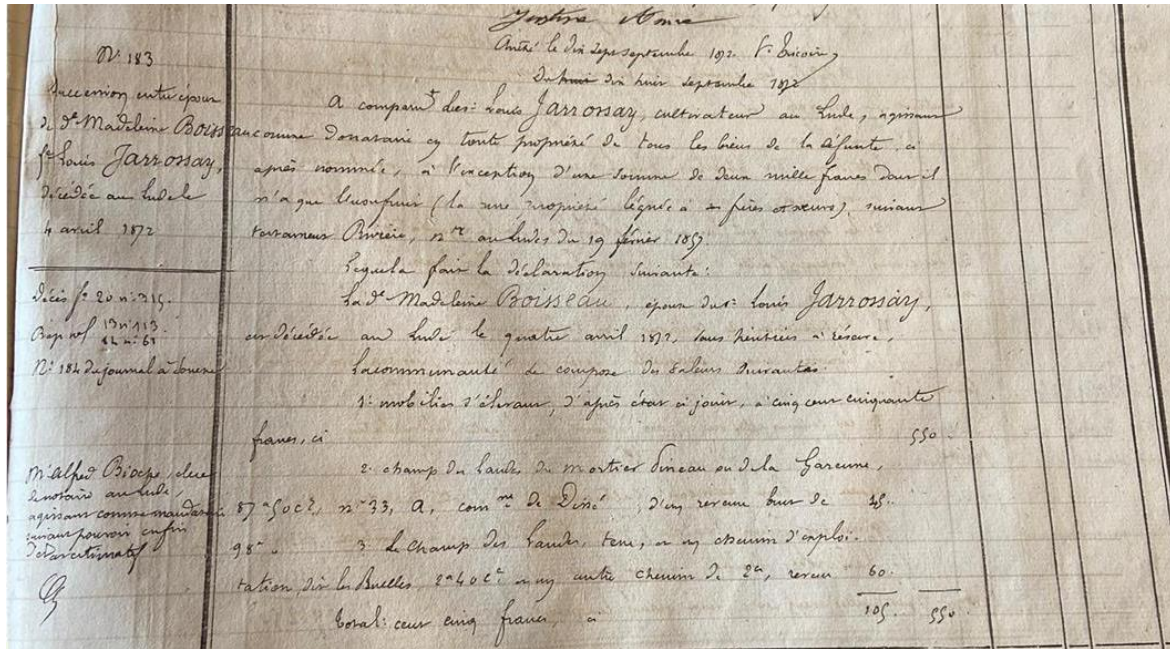 Arrêté le dix sept septembre 1872.
Du dix huit septembre 1872
N° 183
Succession entre époux
de de Madeleine Boisseau
fe Louis Jarrossay,
décédée au Lude le
4 avril 1872
Décès fo 20 no 315.
13 no 113
N° 184 du journal à souche
Me Alfred Bioche, clerc
de notaire au Lude,
agissant comme mandataire
suivant pouvoir en fin
d'état estimatif
A comparu le sr Louis Jarrossay, cultivateur au Lude, agissant
comme donataire en toute propriété de tous les biens de la défunte, ci
après nommée, à l'exception d'une somme de deux mille francs dont il
n'a que l'usufruit (la nue propriété léguée à frères et sœurs), suivant
testament, nre au Lude du 19 février 1857
Lequel a fait la déclaration suivante:
La de Madeleine Boisseau, épouse du sr Louis Jarrossay,
est décédée au Lude le quatre avril 1872, sans héritiers à réserve.
La communauté se compose des valeurs suivantes:
1° mobilier s'élevant, d'après état ci joint, à cinq cent cinquante
francs, ci 550.
2° champ des Landes du mortier ou de la Garenne,
87a 50c, no 33, A, comne de Dissé, d'un revenu brut de 45.
3° Le Champ des Landes, et un chemin d'exploi-
tation dit les Buelles, 2a 40c et un autre chemin de 2a, revenu 60.
Total: cent cinq francs, ci 105. 550.